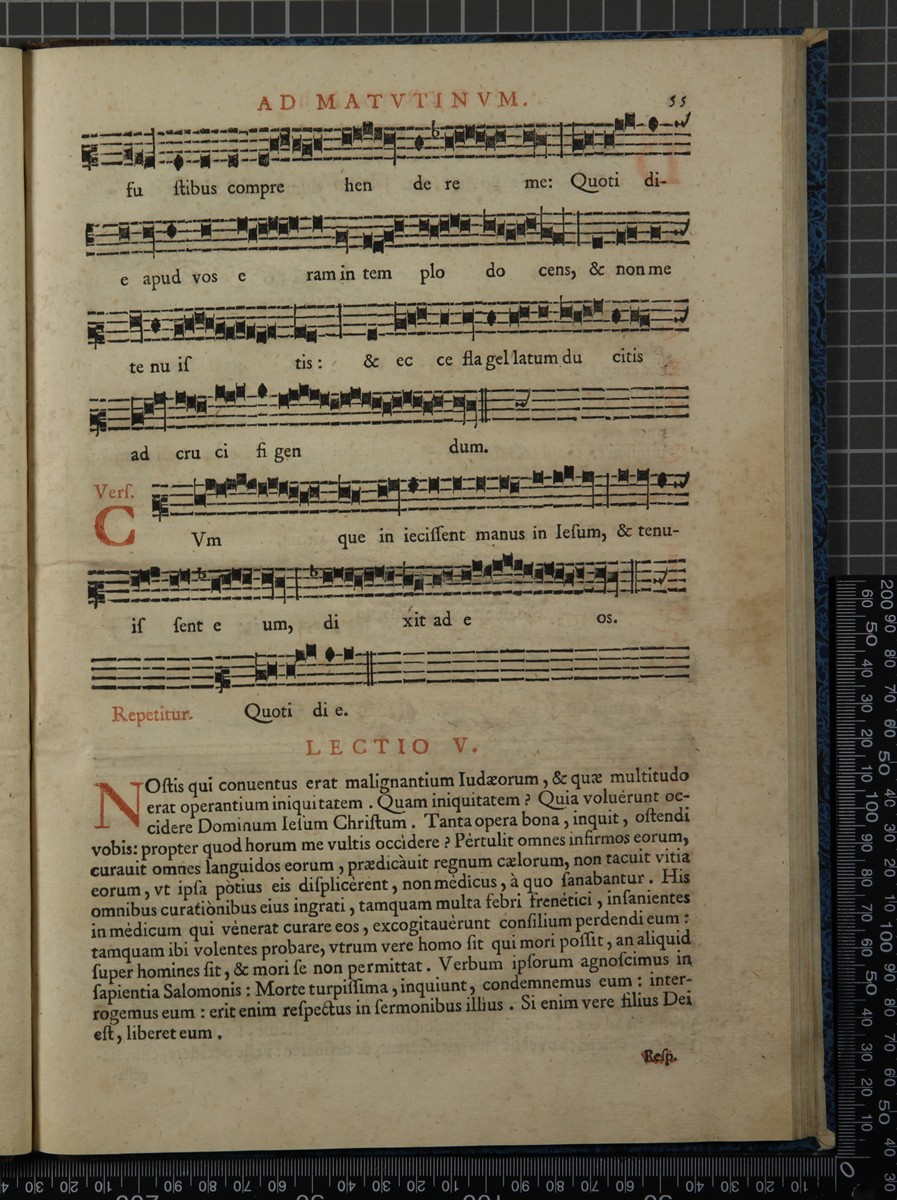 AD MATVTINVM. 55
fu ſtibus compre hen de re me: Quoti di-
e apud vos e ram in tem plo do cens, & non me
te nu iſ tis: & ec ce fla gel latum du citis
ad cru ci fi gen dum.
Verſ.
CVm que in ieciſſent manus in Ieſum, & tenu-
iſ ſent e um, di xit ad e os.
Repetitur. Quoti di e.
LECTIO V.
NOſtis qui conuentus erat malignantium Iudæorum, & quæ multitudo
erat operantium iniquitatem. Quam iniquitatem? Quia voluérunt oc-
cídere Dominum Ieſum Chriſtum. Tanta opera bona, inquit, oſtendi
vobis: propter quod horum me vultis occídere? Pértulit omnes infirmos eorum,
curauit omnes languidos eorum, prædicàuit regnum cælorum, non tacuit vitia
eorum, vt ipſa pòtius eis diſplicèrent, non mèdicus, à quo ſanabantur. His
omnibus curatiònibus eius ingrati, tamquam multa febri frenètici, inſanientes
in mèdicum qui vènerat curare eos, excogitauèrunt conſilium perdendi eum:
tamquam ibi volentes probare, vtrum vere homo ſit qui mori poſſit, an aliquid
ſuper homines ſit, & mori ſe non permittat. Verbum ipſorum agnoſcimus in
ſapientia Salomonis: Morte turpiſſima, inquiunt, condemnemus eum: inter-
rogemus eum: erit enim reſpectus in ſermonibus illius. Si enim vere filius Dei
eſt, liberet eum.
Reſp.